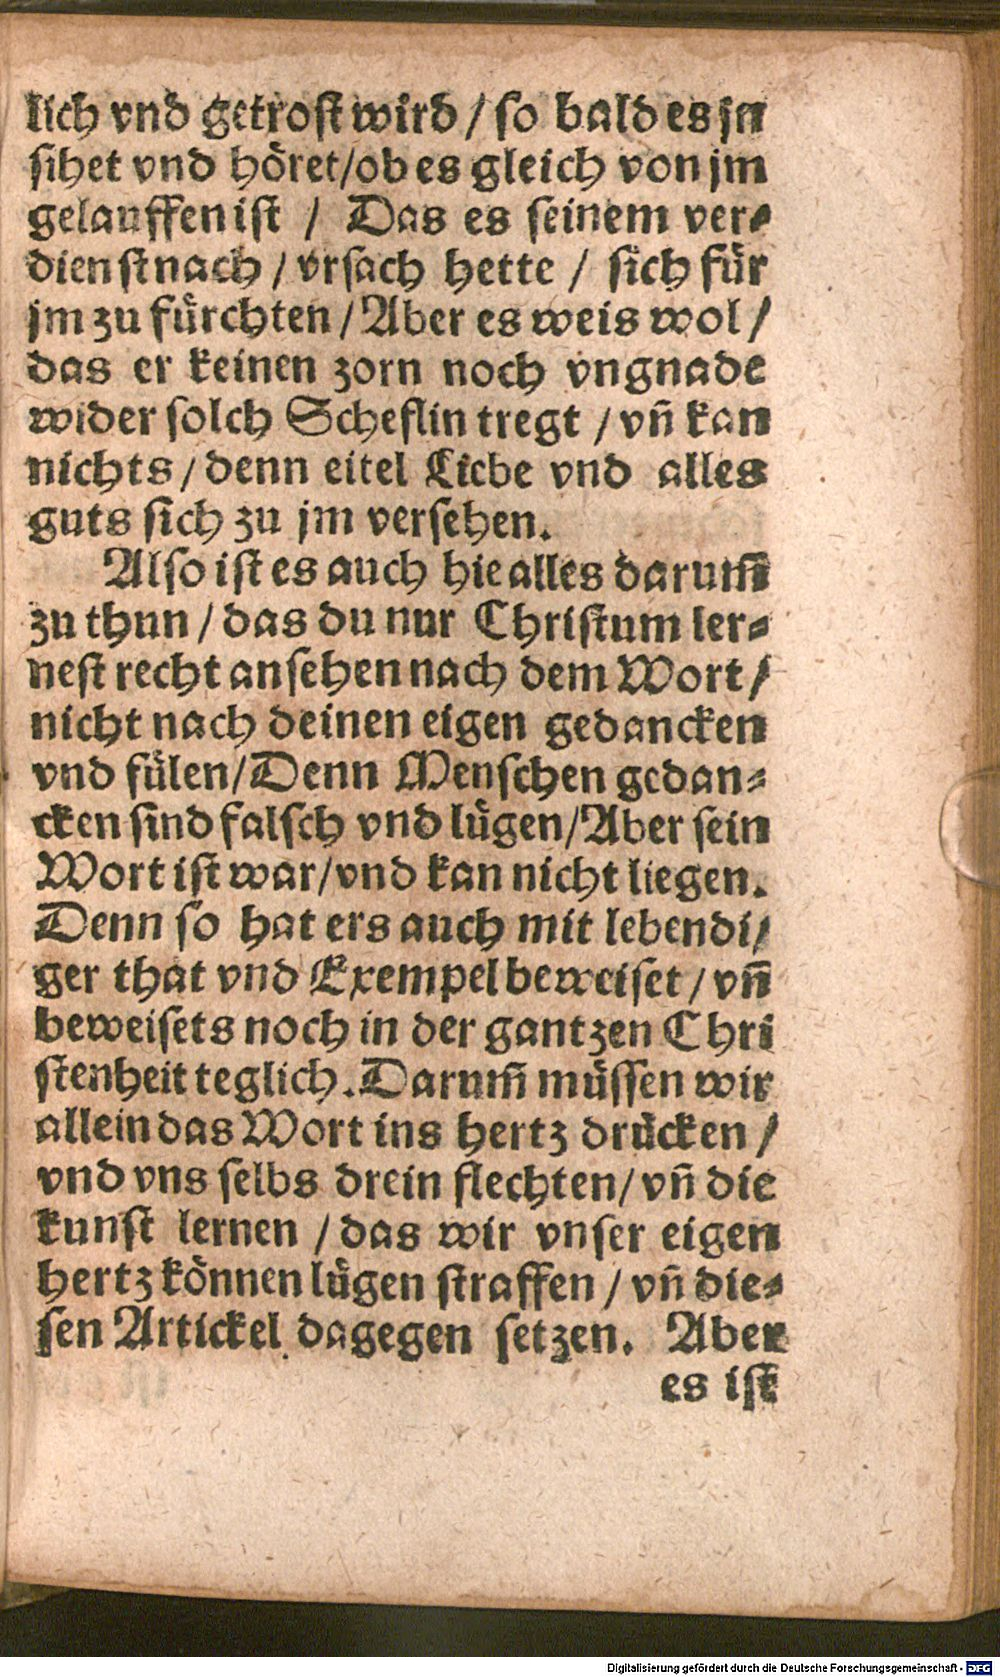 lich vnd getrost wird / so bald es jn
sihet vnd höret / ob es gleich von jm
gelauffen ist / Das es seinem ver-
dienst nach / vrsach hette / sich für
jm zu fürchten / Aber es weis wol /
das er keinen zorn noch vngnade
wider solch Scheflin tregt / vñ kan
nichts / denn eitel Liebe vnd alles
guts sich zu jm versehen.
Also ist es auch hie alles darum̃
zu thun / das du nur Christum ler-
nest recht ansehen nach dem Wort /
nicht nach deinen eigen gedancken
vnd fülen / Denn Menschen gedan-
cken sind falsch vnd lügen / Aber sein
Wort ist war / vnd kan nicht liegen.
Denn so hat ers auch mit lebendi/
ger that vnd Exempel beweiset / vñ
beweisets noch in der gantzen Chri
stenheit teglich. Darum̃ müssen wir
allein das Wort ins hertz drücken /
vnd vns selbs drein flechten / vñ die
kunst lernen / das wir vnser eigen
hertz können lügen straffen / vñ die-
sen Artickel dagegen setzen. Aber
es ist
Digitalisierung gefördert durch die Deutsche Forschungsgemeinschaft - DFG